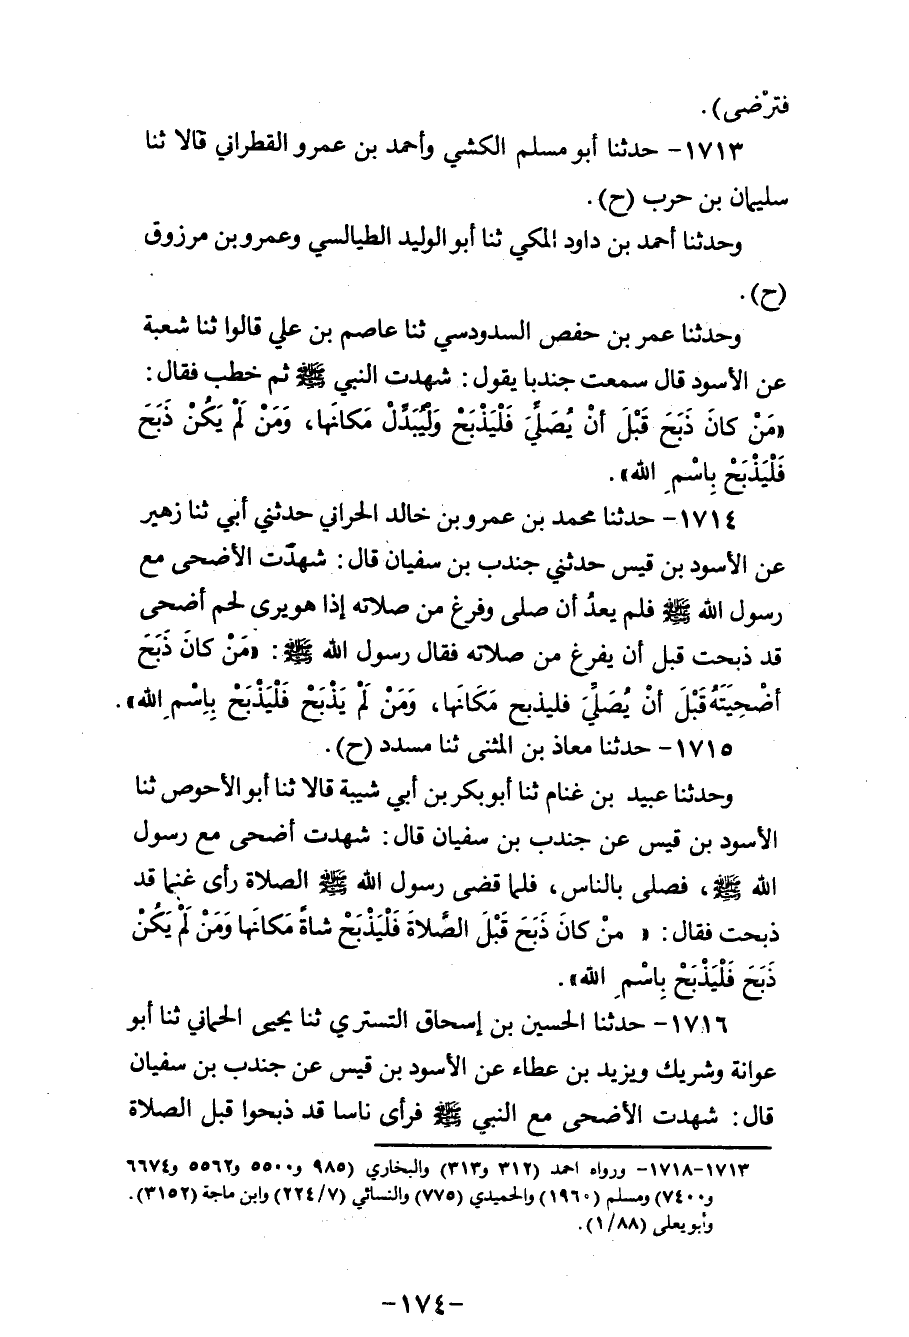 فترْضى).
١٧١٣- حدثنا أبو مسلم الكشي وأحمد بن عمرو القطراني قالا ثنا
سليمان بن حرب (ح).
وحدثنا أحمد بن داود المكي ثنا أبو الوليد الطيالسي وعمرو بن مرزوق
(ح).
وحدثنا عمر بن حفص السدوسي ثنا عاصم بن علي قالوا ثنا شعبة
عن الأسود قال سمعت جندبا يقول: شهدت النبي ﷺ ثم خطب فقال:
«مَنْ كانَ ذَبَحَ قَبْلَ أنْ يُصَلِّيَ فَلْيَذْبَحْ وَلْيُبَدِّلْ مَكانَها، وَمَنْ لَمْ يَكُنْ ذَبَحَ
فَلْيَذْبَحْ بِاسْمِ الله».
١٧١٤- حدثنا محمد بن عمرو بن خالد الحراني حدثني أبي ثنا زهير
عن الأسود بن قيس حدثني جندب بن سفيان قال: شهدّت الأضحى مع
رسول الله ﷺ فلم يعدُ أن صلى وفرغ من صلاته إذا هو يرى لحم أضحى
قد ذبحت قبل أن يفرغ من صلاته فقال رسول الله ﷺ: «مَنْ كانَ ذَبَحَ
أضْحِيَتَهُ قَبْلَ أنْ يُصَلِّيَ فليذبح مَكَانَها، وَمَنْ لَمْ يَذْبَحْ فَلْيَذْبَحْ بِاِسْمِ الله».
١٧١٥- حدثنا معاذ بن المثنى ثنا مسدد (ح).
وحدثنا عبيد بن غنام ثنا أبو بكر بن أبي شيبة قالا ثنا أبو الأحوص ثنا
الأسود بن قيس عن جندب بن سفيان قال: شهدت أضحى مع رسول
الله ﷺ، فصلى بالناس، فلما قضى رسول الله ﷺ الصلاة رأى غنما قد
ذبحت فقال: « منْ كانَ ذَبَحَ قَبْلَ الصَّلاةَ فَلْيَذْبَحْ شاةً مَكانَها وَمَنْ لَمْ يَكُنْ
ذَبَحَ فَلْيَذْبَحْ بِاسْمِ الله».
١٧١٦- حدثنا الحسين بن إسحاق التستري ثنا يحيى الحماني ثنا أبو
عوانة وشريك ويزيد بن عطاء عن الأسود بن قيس عن جندب بن سفيان
قال: شهدت الأضحى مع النبي ﷺ فرأى ناسا قد ذبحوا قبل الصلاة
١٧١٣-١٧١٨- ورواه احمد (٣١٢ و٣١٣) والبخاري (٩٨٥ و٥٥٠٠ و٥٥٦٢ و٦٦٧٤
و٧٤٠٠) ومسلم (١٩٦٠) والحميدي (٧٧٥) والنسائي (٢٢٤/٧) وابن ماجة (٣١٥٢).
وأبو يعلى (١/٨٨).
-١٧٤-